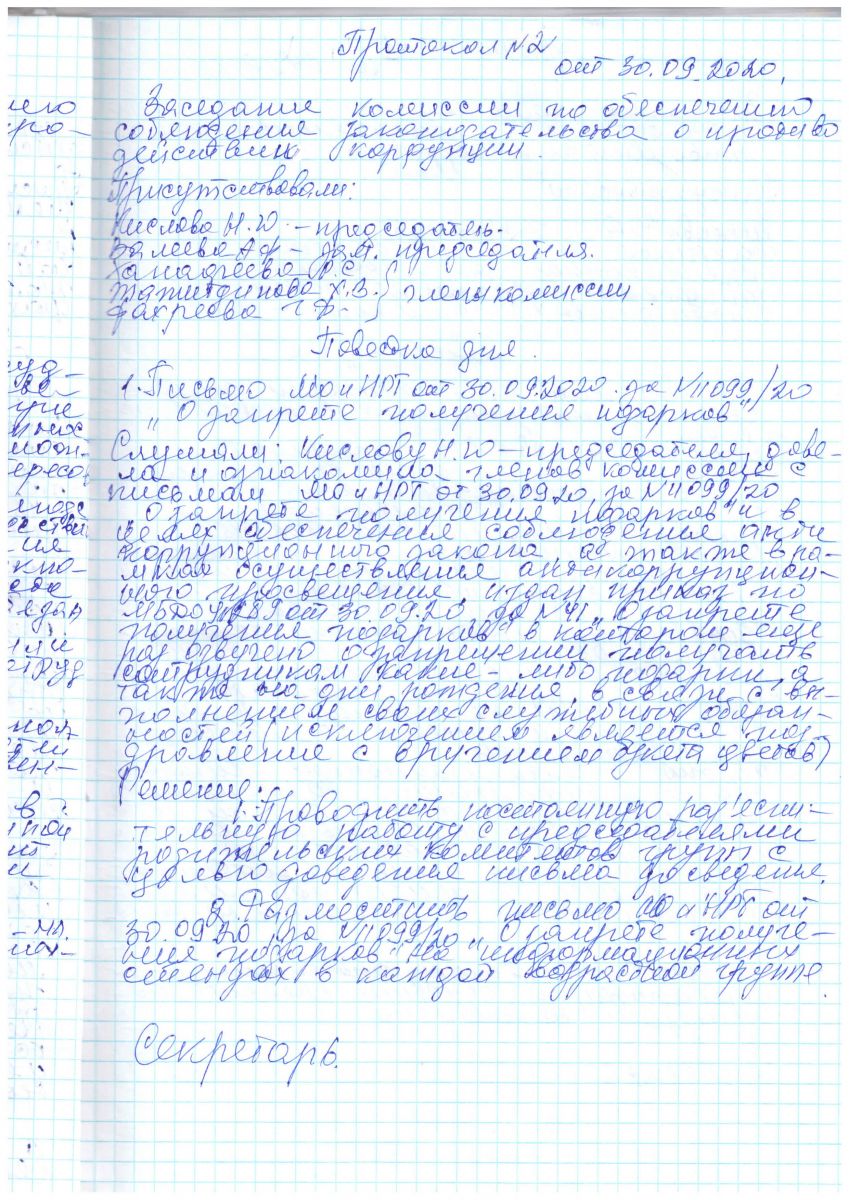 Протокол №2
от 30.09.2020.
Заседание комиссии по обеспечению
соблюдения законодательства о противо
действии коррупции.
Присутствовали:
Кислова Н.Ю. – председатель.
Валеева А.Ф – зам. председателя.
Р.С
Х.В. } члены комиссии
Фахреева Г.Ф.
Повестка дня.
1. Письмо МО и НРТ от 30.09.2020. за №11099/20
„О запрете получения подарков"
Слушали: Кислову Н.Ю – председателя, дове-
ла и ознакомила членов комиссии с
письмом МО и НРТ от 30.09.20 за №11099/20
„О запрете получения подарков" и в
целях обеспечения соблюдения анти
коррупционного закона, а также в ра-
мках осуществления антикоррупцион-
ного просвещения издан приказ по
МБДОУ от 30.09.20 за №41 „О запрете
получения подарков" в котором еще
раз озвучено о запрещении получать
сотрудникам какие-либо подарки, а
также на дни рождения, в связи с вы-
полнением своих служебных обязан-
ностей (исключением является поз-
дравление с вручением букета цветов)
Решение:
1. Проводить постоянную раз'ясни-
тельную работу с председателями
родительских комитетов групп с
целью доведения письма до сведения.
2. Разместить письмо МО и НРТ от
30.09.20 за №11099/20 „О запрете получе-
ния подарков" на информационных
стендах в каждой возрастной группе.
Секретарь.